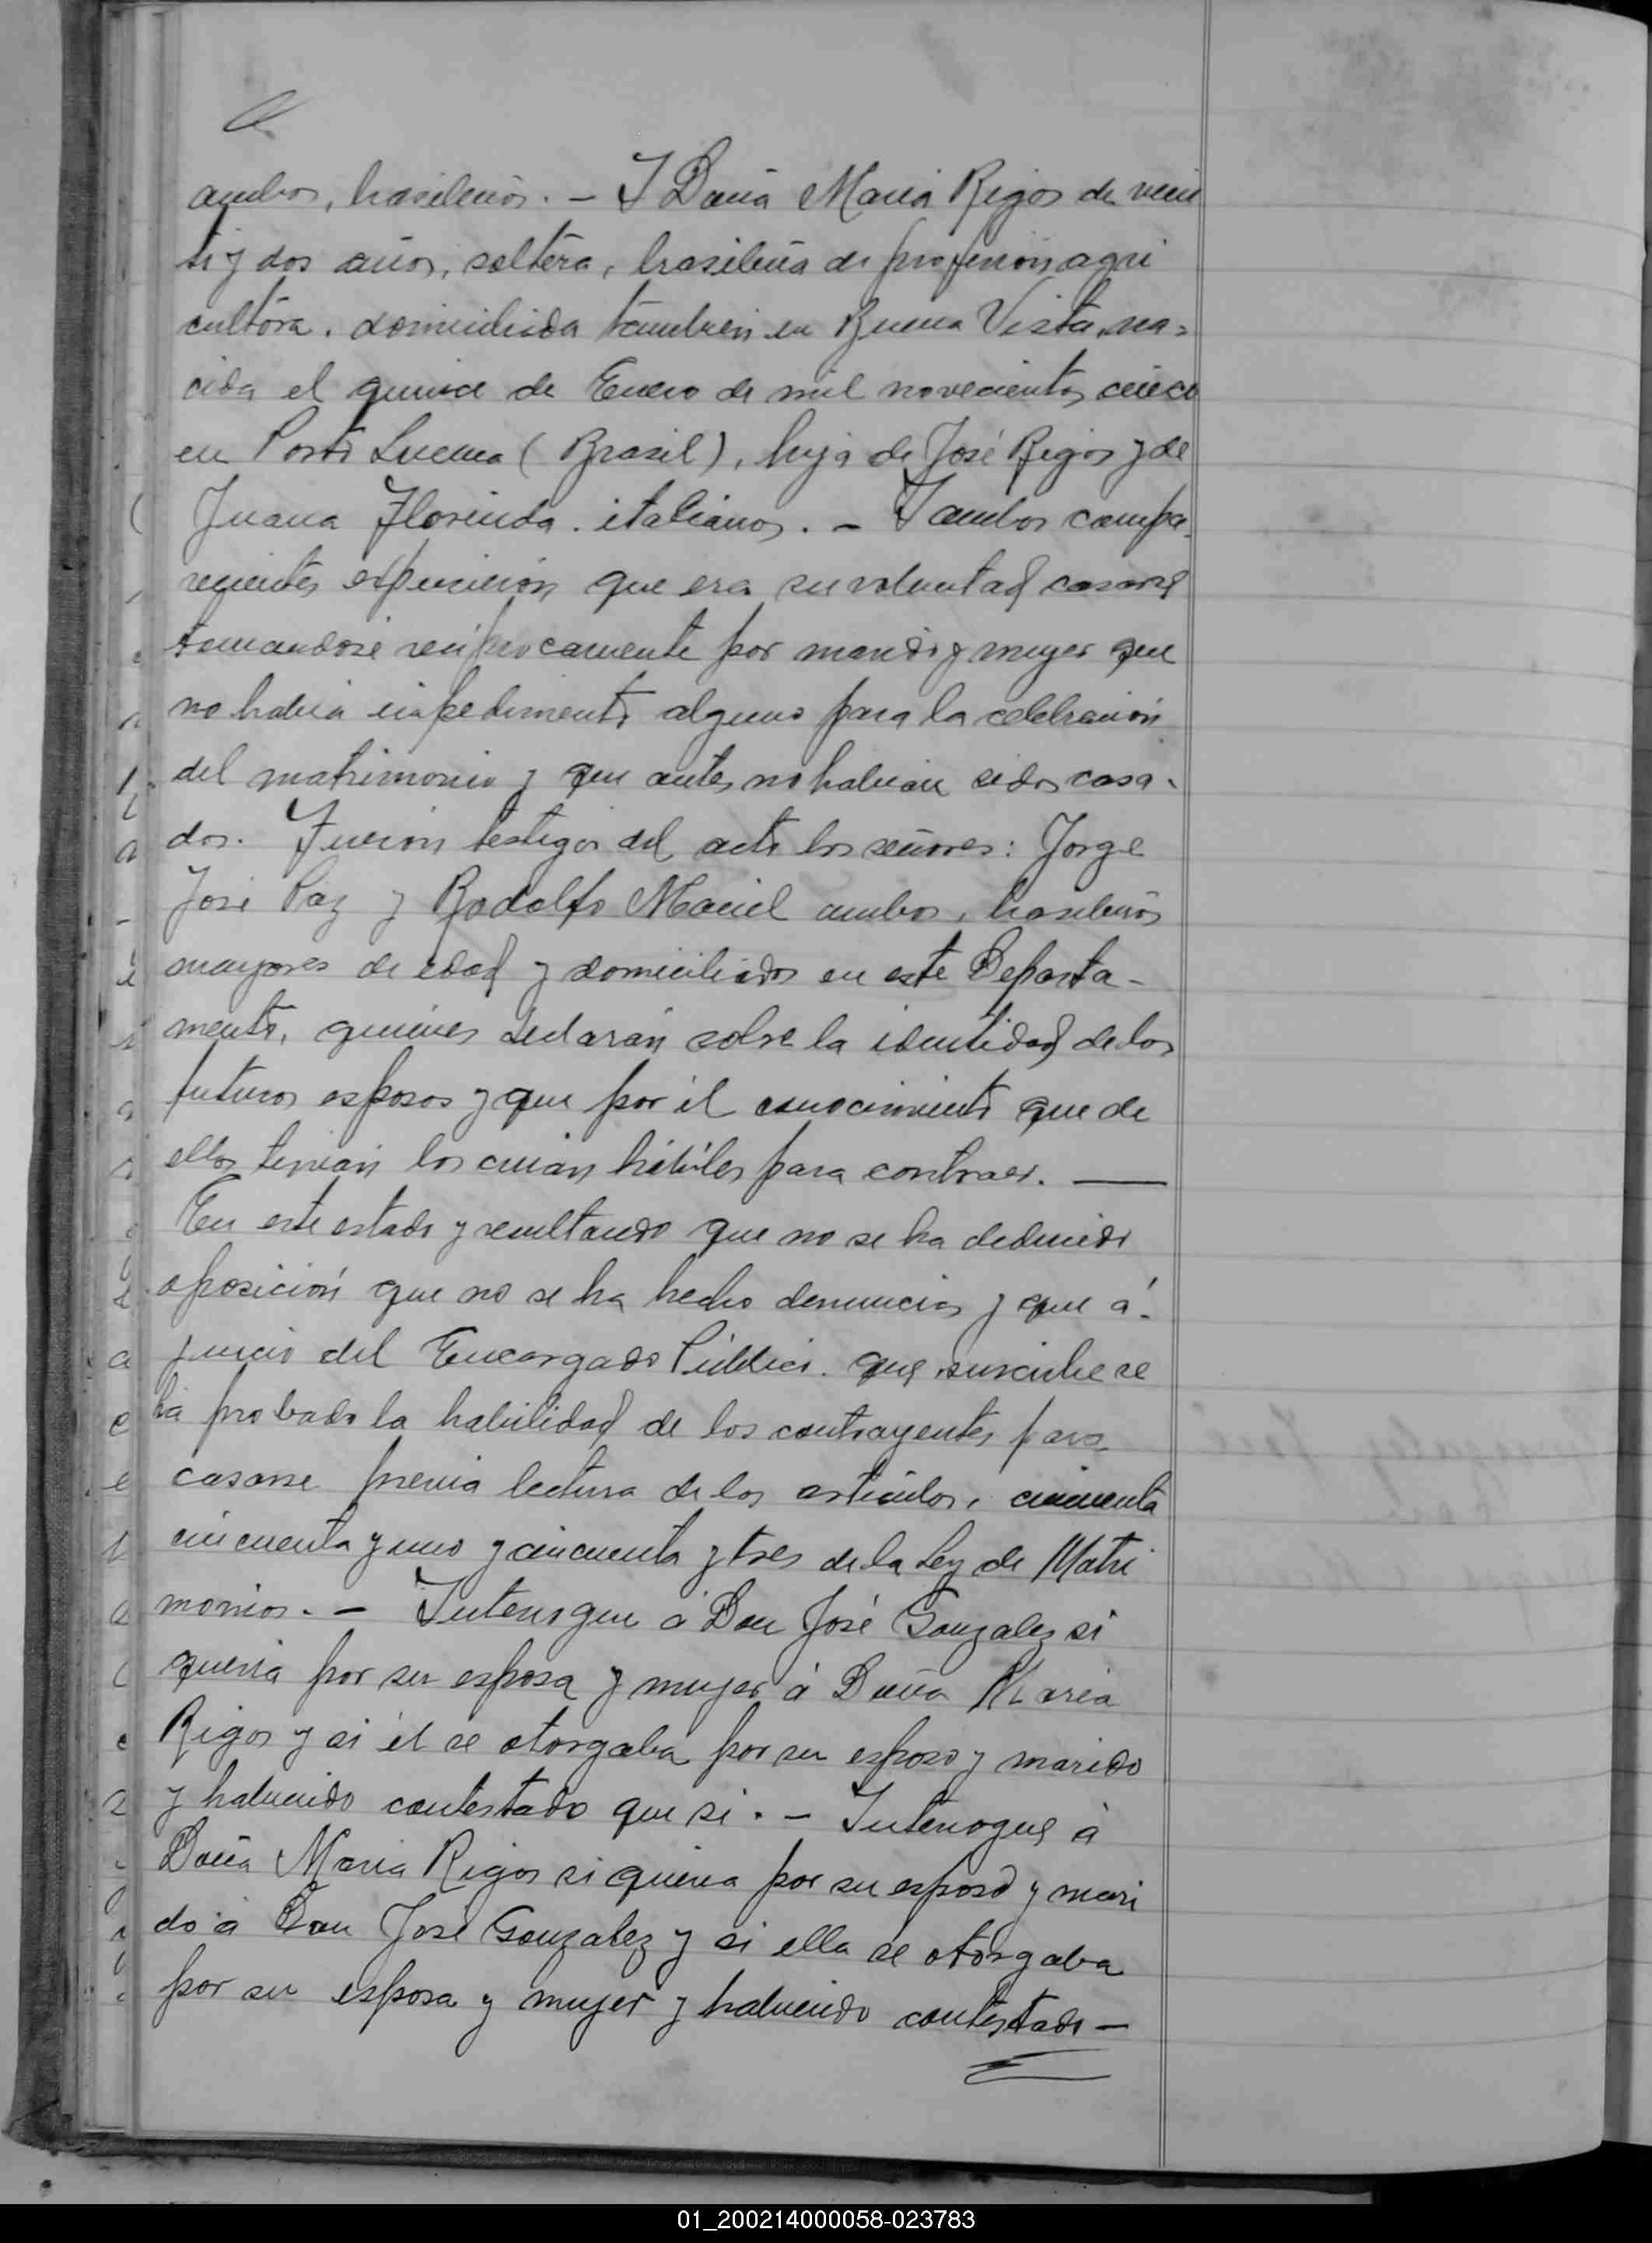 ambos, brasileños. — I Doña Maria Rigos de vein
ti y dos años, soltera, brasileña de profesion agri
cultora. domiciliada tambien en Buena Vista, na=
cida el quince de Enero de mil novecientos cinco
en Porto Lucena (Brasil), hija de José Rigos y de
Juana Florinda. italianos. — I ambos compa-
recientes expusieron que era su voluntad casarse
tomandose recíprocamente por marido y mujer que
no habia impedimento alguno para la celebración
del matrimonio y que antes no habian sidos casa-
dos. Fueron testigos del acto los señores: Jorge
José Paz y Rodolfo Maciel ambos, brasileños
mayores de edad y domiciliados en este Departa-
mento, quienes declarán sobre la identidad de los
futuros esposos y que por él conocimiento que de
ellos tenian los creian hábiles para contraer. —
En este estado y resultando que no se ha deducido
oposición que no se ha hecho denuncias y que á-
juicio del Encargado Público. que suscribe se
ha probado la habilidad de los contrayentes para
casarse previa lectura de los articulos, cincuenta
cincuenta y uno y cincuenta y tres de la Ley de Matri
monios. — Interrogue á Don José Gonzalez si
queria por su esposa y mujer á Doña Maria
Rigos y si él se otorgaba por su esposo y marido
y habiendo contestado que si. — Interrogue á
Doña Maria Rigos si queria por su esposo y mari
do á Don José Gonzalez y si ella se otorgaba
por su esposa y mujer y habiendo contestado —
01_200214000058-023783